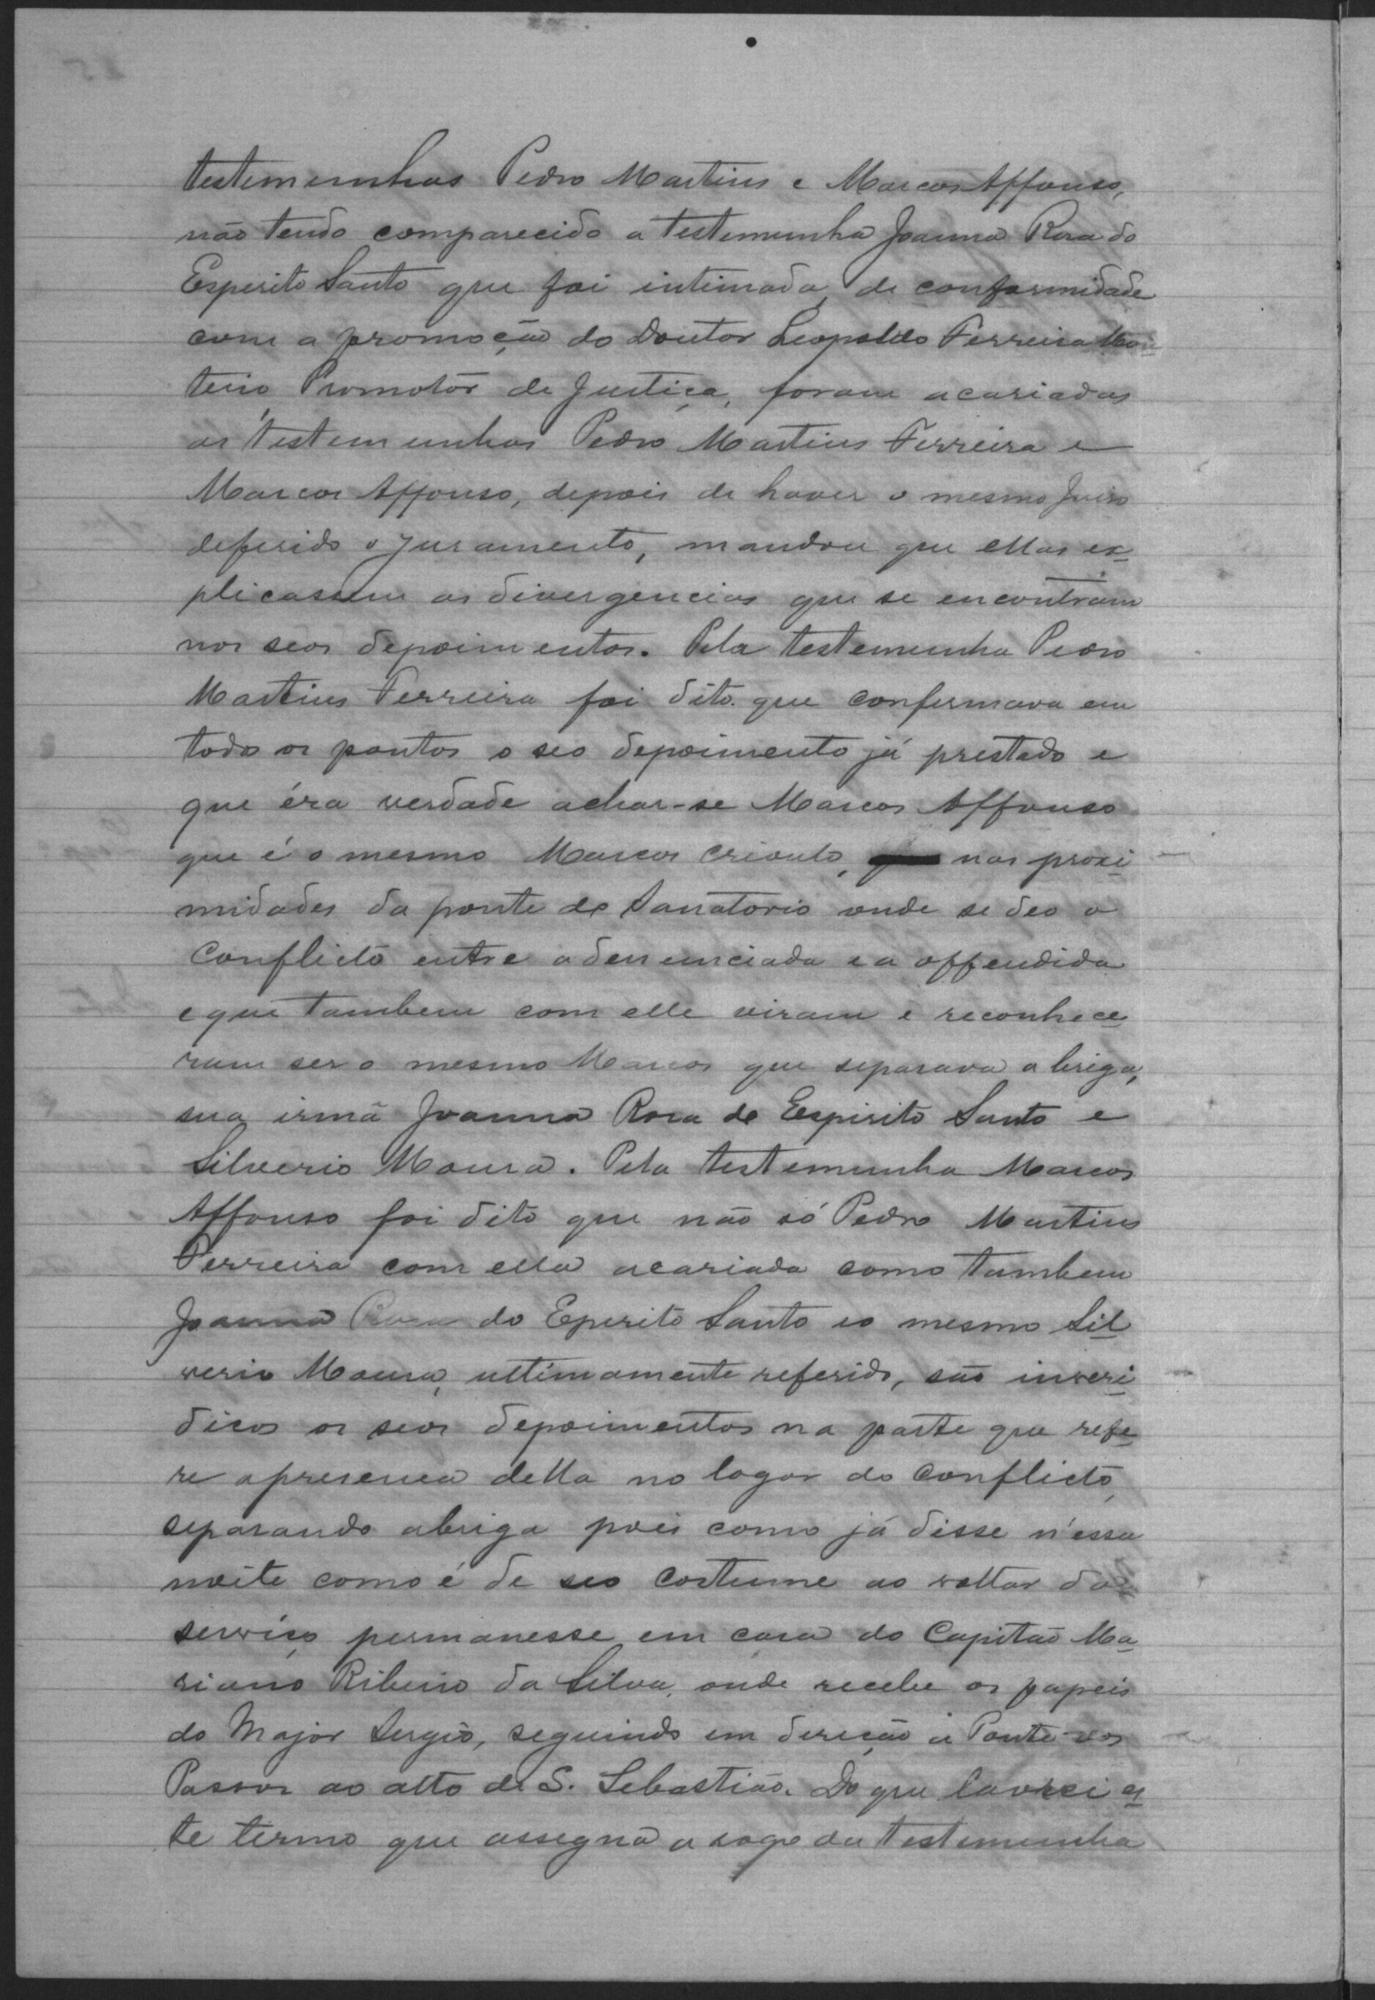 testemunhas Pedro Martins e Marcos Affonso,
não tendo comparecido a testemunha Joanna Rosa do
Esperito Santo que foi intimada, de conformidade
com a promoção do Doutor Leopoldo Ferreira Mon-
teiro Promotor de Justiça, foram acariadas
as testemunhas Pedro Martins Ferreira e
Marcos Affonso, depois de haver o mesmo Juiso
deferido o juramento, mandou que ellas ex-
plicassem as divergencias que se encontram
nos seos depoimentos. Pela testemunha Pedro
Martins Ferreira foi dito que confermava em
todo os pontos o seo depoimento já prestado e
que éra verdade achar-se Marcos Affonso
que é o mesmo Marcos crioulo, nas proxi-
midades da ponte do Sanatorio onde se deo o
conflicto entre a denunciada e a offendida
e que tambem com elle viram e reconhece-
ram ser o mesmo Marcos que separava a briga,
sua irmã Joanna Rosa do Espirito Santo e
Silverio Moura. Pela testemunha Marcos
Affonso foi dito que não só Pedro Martins
Ferreira com ella acariada como tambem
Joanna Rosa do Eperito Santo eo mesmo Sil-
verio Moura, ultimamente referido, são inveri-
dicos os seos depoimentos na parte que refe-
re apresença della no logar do conflicto,
separando abriga pois como já disse n'essa
noite como é de seo costume ao voltar do
serviço permanesse em casa do Capitão Ma-
riano Ribeiro da Silva, onde recebe os papeis
do Major Sergio, seguindo em direção a Ponte dos
Passos ao alto de S. Sebastião. Do que lavrei es-
te termo que assegna a rogo da testemunha